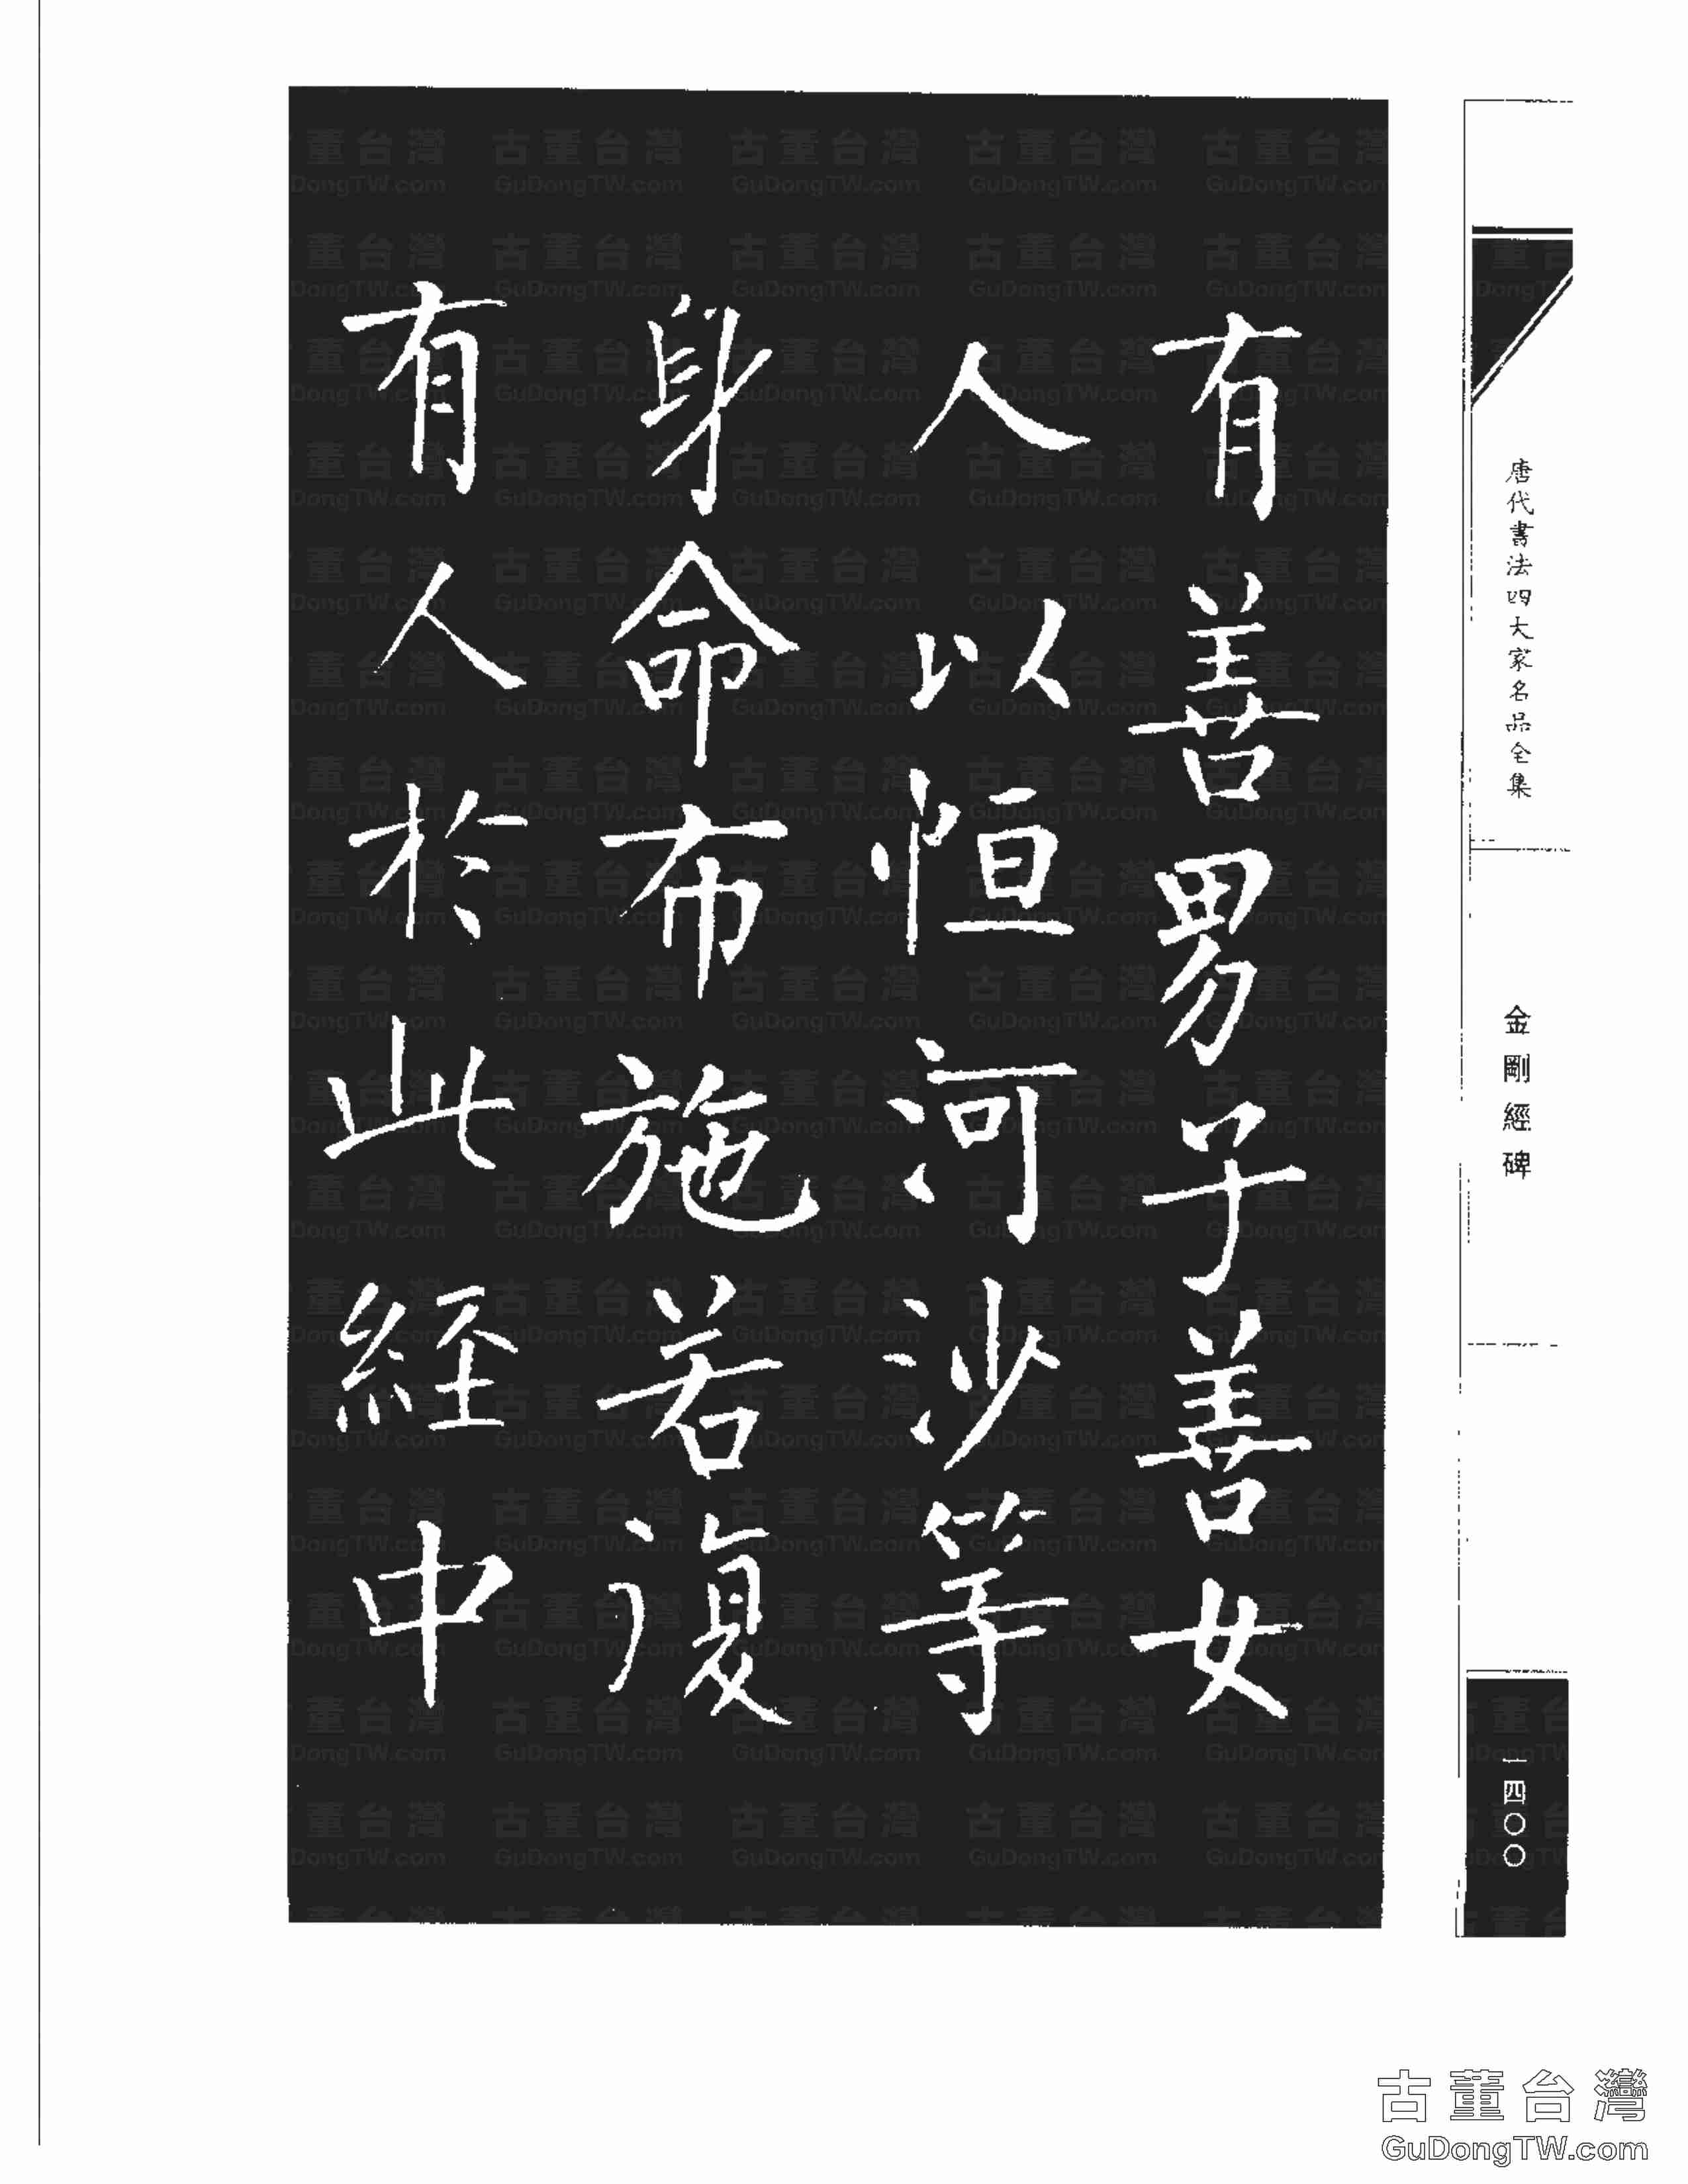 唐代書法四大家名品全集
金剛經碑
一四〇〇
有善男子善女
人以恒河沙等
身命布施若復
有人於此經中
古董台灣
GuDongTW.com